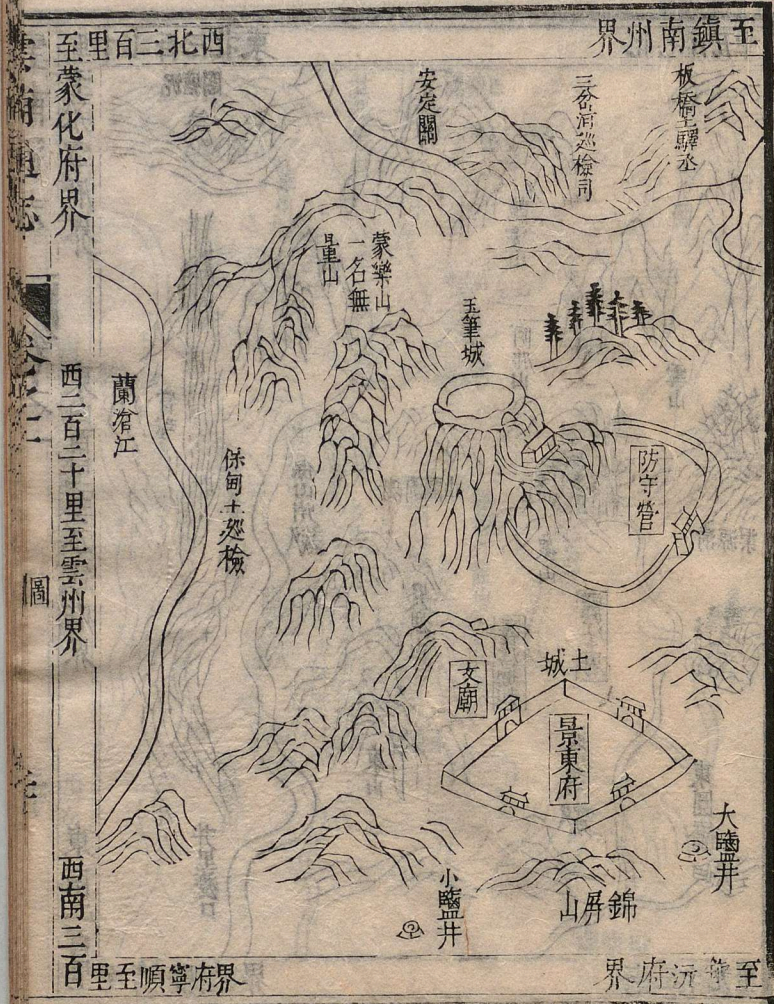 至鎮南州界
西北三百里
至蒙化府界
板橋土驛丞
三岔河巡檢司
安定關
蒙樂山
一名無
量山
玉筆城
防守營
蘭滄江
保甸土巡檢
西二百二十里至雲州界
土城
文廟
景東府
大鹽井
小鹽井
錦屏山
西南三百
里至順寧府界
至沅府界
雲南通志
圖